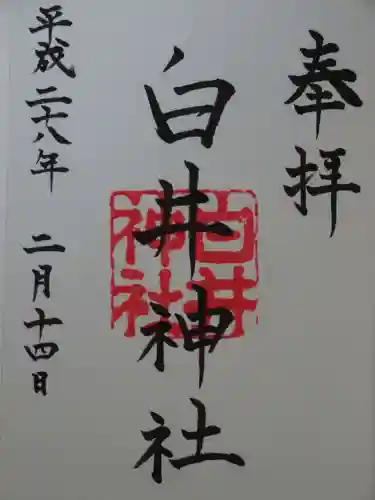 奉拝
白井神社
白井
神社
平成二十八年 二月十四日